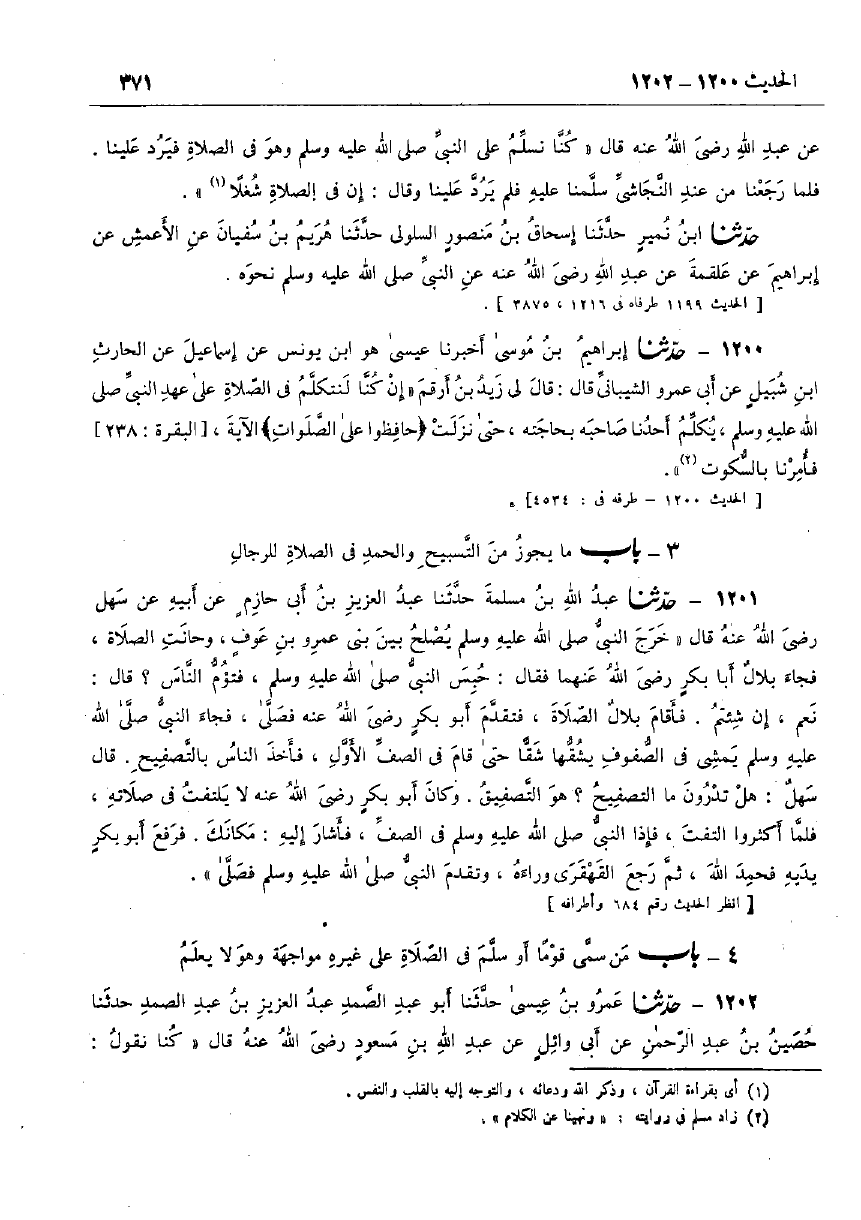 الحديث ١٢٠٠ – ١٢٠٢ ٣٧١
عن عبدِ اللهِ رضىَ اللهُ عنه قال « كُنَّا نسلِّمُ على النبىِّ صلى الله عليه وسلم وهوَ فى الصلاةِ فيَرُد عَلينا .
فلما رَجَعْنا من عندِ النَّجَاشىِّ سلَّمنا عليهِ فلم يَرُدَّ عَلينا وقال : إن فى الصلاةِ شُغلًا (١) » .
حدّثنا ابنُ نُميرٍ حدَّثَنا إسحاقُ بنُ مَنصورٍ السلولى حدَّثَنا هُرَيمُ بنُ سُفيانَ عنِ الأعمشِ عن
إبراهيمَ عن عَلقمةَ عن عبدِ اللهِ رضىَ اللهُ عنه عنِ النبىِّ صلى الله عليه وسلم نحوَه .
[ الحديث ١١٩٩ طرفاه فى ١٢١٦ ، ٣٨٧٥ ] .
١٢٠٠ – حدّثنا إبراهيمُ بنُ مُوسىٰ أخبرنا عيسىٰ هو ابن يونس عن إسماعيلَ عن الحارثِ
ابنِ شُبَيلٍ عن أبى عمرو الشيبانىِّ قال : قالَ لى زَيدُ بنُ أرقمَ « إنْ كُنَّا لَنتكلَّمُ فى الصَّلاةِ علىٰ عهدِ النبىِّ صلى
الله عليهِ وسلم ، يُكلِّمُ أحدُنا صَاحبَه بحاجَته ، حتىٰ نزَلَتْ ﴿حافِظوا علىٰ الصَّلَواتِ﴾ الآيةَ ، [البقرة : ٢٣٨]
فأُمِرْنا بالسُّكوتِ (٢)» .
[ الحديث ١٢٠٠ – طرفه فى : ٤٥٣٤] .
٣ – باب ما يجوزُ منَ التَّسبيحِ والحمدِ فى الصلاةِ للرجالِ
١٢٠١ – حدّثنا عبدُ اللهِ بنُ مسلمةَ حدَّثَنا عبدُ العزيزِ بنُ أبى حازمٍ عن أبيهِ عن سَهل
رضىَ اللهُ عنهُ قال « خَرَجَ النبىُّ صلى الله عليهِ وسلم يُصْلحُ بينَ بنى عمرو بنِ عَوفٍ ، وحانَتِ الصلاة ،
فجاءَ بلالٌ أبا بكرٍ رضىَ اللهُ عَنهما فقال : حُبِسَ النبىُّ صلىٰ اللهُ عليهِ وسلم ، فتؤُمُّ النَّاسَ ؟ قال :
نَعم ، إن شِئتمُ . فأقامَ بلالٌ الصَّلَاةَ ، فتقدَّمَ أبو بكرٍ رضىَ اللهُ عنه فصَلَّىٰ ، فجاءَ النبىُّ صلَّىٰ الله
عليهِ وسلم يَمشِى فى الصُّفوفِ يشُقُّها شَقًّا حتىٰ قامَ فى الصفِّ الأوَّلِ ، فأخذَ الناسُ بالتَّصفِيحِ . قال
سَهلٌ : هلْ تَدْرُونَ ما التصفيحُ ؟ هوَ التَّصفيقُ . وكانَ أبو بكرٍ رضىَ اللهُ عنه لا يَلتفتُ فى صلاتِه ،
فلمَّا أكثروا التفتَ ، فإذا النبىُّ صلى الله عليهِ وسلم فى الصفِّ ، فأشارَ إليهِ : مَكانَكَ . فرفعَ أبو بكرٍ
يدَيهِ فحمِدَ اللهَ ، ثمَّ رَجعَ القَهْقَرَى وراءَهُ ، وتقدمَ النبىُّ صلىٰ اللهُ عليهِ وسلم فصَلَّىٰ » .
[ انظر الحديث رقم ٦٨٤ وأطرافه ]
٤ – باب مَن سمَّى قومًا أو سلَّمَ فى الصَّلَاةِ على غيرهِ مواجهَة وهوَ لا يعلَمُ
١٢٠٢ – حدّثنا عَمرُو بنُ عِيسىٰ حدَّثَنا أبو عبدِ الصَّمدِ عبدُ العزيزِ بنُ عبدِ الصمدِ حدثَنا
حُصَينُ بنُ عبدِ الرّحمٰنِ عن أبى وائلٍ عن عبدِ اللهِ بنِ مَسعودٍ رضىَ اللهُ عنهُ قال « كُنا نقولُ :
(١) أى بقراءة القرآن ، وذكر الله ودعائه ، والتوجه إليه بالقلب والنفس .
(٢) زاد مسلم فى روايته : « ونهينا عن الكلام » .